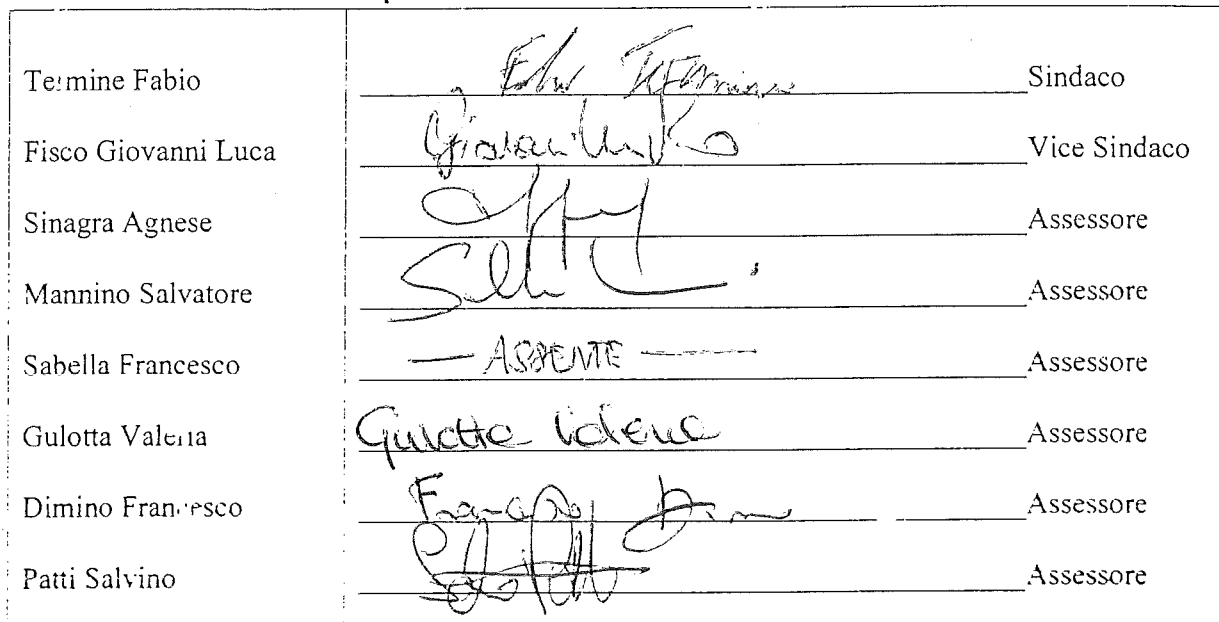 Termine Fabio Fabio Termine Sindaco
Fisco Giovanni Luca Giovanni Vice Sindaco
Sinagra Agnese Assessore
Mannino Salvatore Assessore
Sabella Francesco — ASSENTE — Assessore
Gulotta Valeria Gulotta Valeria Assessore
Dimino Francesco Francesco Dimino Assessore
Patti Salvino Assessore